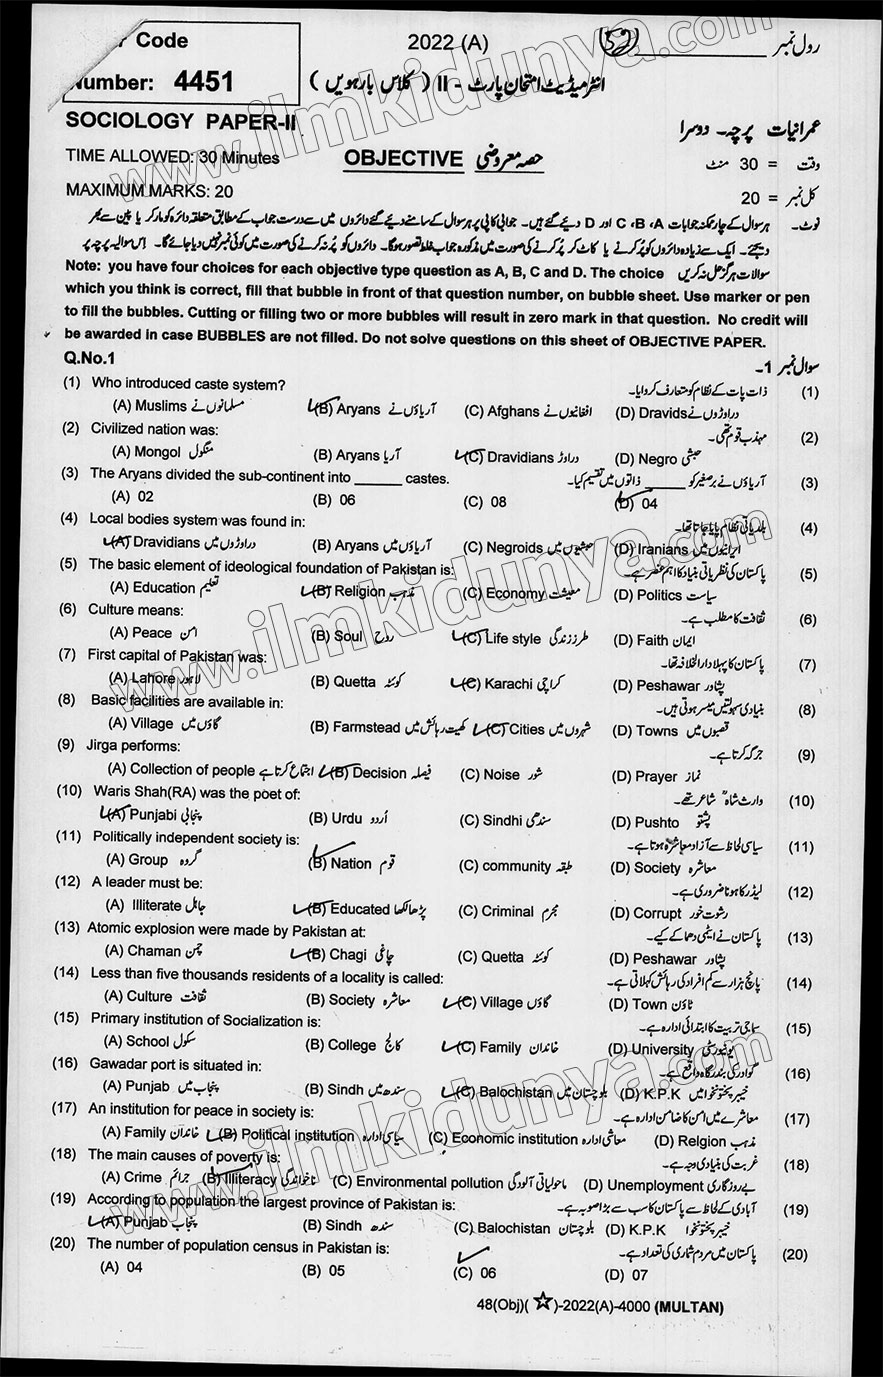 Code
Number: 4451
2022 (A)
رول نمبر
انٹرمیڈیٹ امتحان پارٹ - II ( کلاس بارہویں )
SOCIOLOGY PAPER-II
عمرانیات پرچہ - دوسرا
TIME ALLOWED: 30 Minutes
OBJECTIVE حصہ معروضی
وقت = 30 منٹ
MAXIMUM MARKS: 20
کل نمبر = 20
نوٹ - ہر سوال کے چار ممکنہ جوابات A ، B ، C اور D دیئے گئے ہیں۔ جوابی کاپی پر ہر سوال کے سامنے دیئے گئے دائروں میں سے درست جواب کے مطابق متعلقہ دائرہ کو مارکر یا پین سے بھر
دیجئے۔ ایک سے زیادہ دائروں کو پُر کرنے یا کاٹ کر پُر کرنے کی صورت میں مذکورہ جواب غلط تصور ہوگا۔ دائروں کو پُر نہ کرنے کی صورت میں کوئی نمبر نہیں دیا جائے گا۔ اس سوالیہ پرچہ پر
سوالات ہرگز حل نہ کریں
Note: you have four choices for each objective type question as A, B, C and D. The choice
which you think is correct, fill that bubble in front of that question number, on bubble sheet. Use marker or pen
to fill the bubbles. Cutting or filling two or more bubbles will result in zero mark in that question. No credit will
be awarded in case BUBBLES are not filled. Do not solve questions on this sheet of OBJECTIVE PAPER.
Q.No.1 سوال نمبر 1-
(1) Who introduced caste system? ذات پات کے نظام کو متعارف کروایا۔ (1)
(A) Muslims مسلمانوں نے (B) Aryans آریاؤں نے (C) Afghans افغانیوں نے (D) Dravids دراوڑوں نے
(2) Civilized nation was: مہذب قوم تھی۔ (2)
(A) Mongol منگول (B) Aryans آریا (C) Dravidians دراوڑ (D) Negro حبشی
(3) The Aryans divided the sub-continent into ______ castes. آریاؤں نے برصغیر کو _____ ذاتوں میں تقسیم کیا۔ (3)
(A) 02 (B) 06 (C) 08 (D) 04
(4) Local bodies system was found in: بلدیاتی نظام پایا جاتا تھا۔ (4)
(A) Dravidians دراوڑوں میں (B) Aryans آریاؤں میں (C) Negroids حبشیوں میں (D) Iranians ایرانیوں میں
(5) The basic element of ideological foundation of Pakistan is: پاکستان کی نظریاتی بنیاد کا اہم عنصر ہے۔ (5)
(A) Education تعلیم (B) Religion مذہب (C) Economy معیشت (D) Politics سیاست
(6) Culture means: ثقافت کا مطلب ہے۔ (6)
(A) Peace امن (B) Soul روح (C) Life style طرز زندگی (D) Faith ایمان
(7) First capital of Pakistan was: پاکستان کا پہلا دارالخلافہ تھا۔ (7)
(A) Lahore لاہور (B) Quetta کوئٹہ (C) Karachi کراچی (D) Peshawar پشاور
(8) Basic facilities are available in: بنیادی سہولتیں میسر ہوتی ہیں۔ (8)
(A) Village گاؤں میں (B) Farmstead کھیت رہائش میں (C) Cities شہروں میں (D) Towns قصبوں میں
(9) Jirga performs: جرگہ کرتا ہے۔ (9)
(A) Collection of people اجتماع کرتا ہے (B) Decision فیصلہ (C) Noise شور (D) Prayer نماز
(10) Waris Shah(RA) was the poet of: وارث شاہؒ شاعر تھے۔ (10)
(A) Punjabi پنجابی (B) Urdu اُردو (C) Sindhi سندھی (D) Pushto پشتو
(11) Politically independent society is: سیاسی لحاظ سے آزاد معاشرہ ہوتا ہے۔ (11)
(A) Group گروہ (B) Nation قوم (C) community طبقہ (D) Society معاشرہ
(12) A leader must be: لیڈر کا ہونا ضروری ہے۔ (12)
(A) Illiterate جاہل (B) Educated پڑھا لکھا (C) Criminal مجرم (D) Corrupt رشوت خور
(13) Atomic explosion were made by Pakistan at: پاکستان نے ایٹمی دھماکے کیے۔ (13)
(A) Chaman چمن (B) Chagi چاغی (C) Quetta کوئٹہ (D) Peshawar پشاور
(14) Less than five thousands residents of a locality is called: پانچ ہزار سے کم افراد کی رہائش کہلاتی ہے۔ (14)
(A) Culture ثقافت (B) Society معاشرہ (C) Village گاؤں (D) Town ٹاؤن
(15) Primary institution of Socialization is: سماجی تربیت کا ابتدائی ادارہ ہے۔ (15)
(A) School سکول (B) College کالج (C) Family خاندان (D) University یونیورسٹی
(16) Gawadar port is situated in: گوادر کی بندرگاہ واقع ہے۔ (16)
(A) Punjab پنجاب میں (B) Sindh سندھ میں (C) Balochistan بلوچستان میں (D) K.P.K خیبر پختونخوا میں
(17) An institution for peace in society is: معاشرے میں امن کا ضامن ادارہ ہے۔ (17)
(A) Family خاندان (B) Political institution سیاسی ادارہ (C) Economic institution معاشی ادارہ (D) Relgion مذہب
(18) The main causes of poverty is: غربت کی بنیادی وجہ ہے۔ (18)
(A) Crime جرائم (B) Illiteracy ناخواندگی (C) Environmental pollution ماحولیاتی آلودگی (D) Unemployment بے روزگاری
(19) According to population the largest province of Pakistan is: آبادی کے لحاظ سے پاکستان کا سب سے بڑا صوبہ ہے۔ (19)
(A) Punjab پنجاب (B) Sindh سندھ (C) Balochistan بلوچستان (D) K.P.K خیبر پختونخوا
(20) The number of population census in Pakistan is: پاکستان میں مردم شماری کی تعداد ہے۔ (20)
(A) 04 (B) 05 (C) 06 (D) 07
48(Obj)(☆)-2022(A)-4000 (MULTAN)
www.ilmkidunya.com
www.ilmkidunya.com
www.ilmkidunya.com